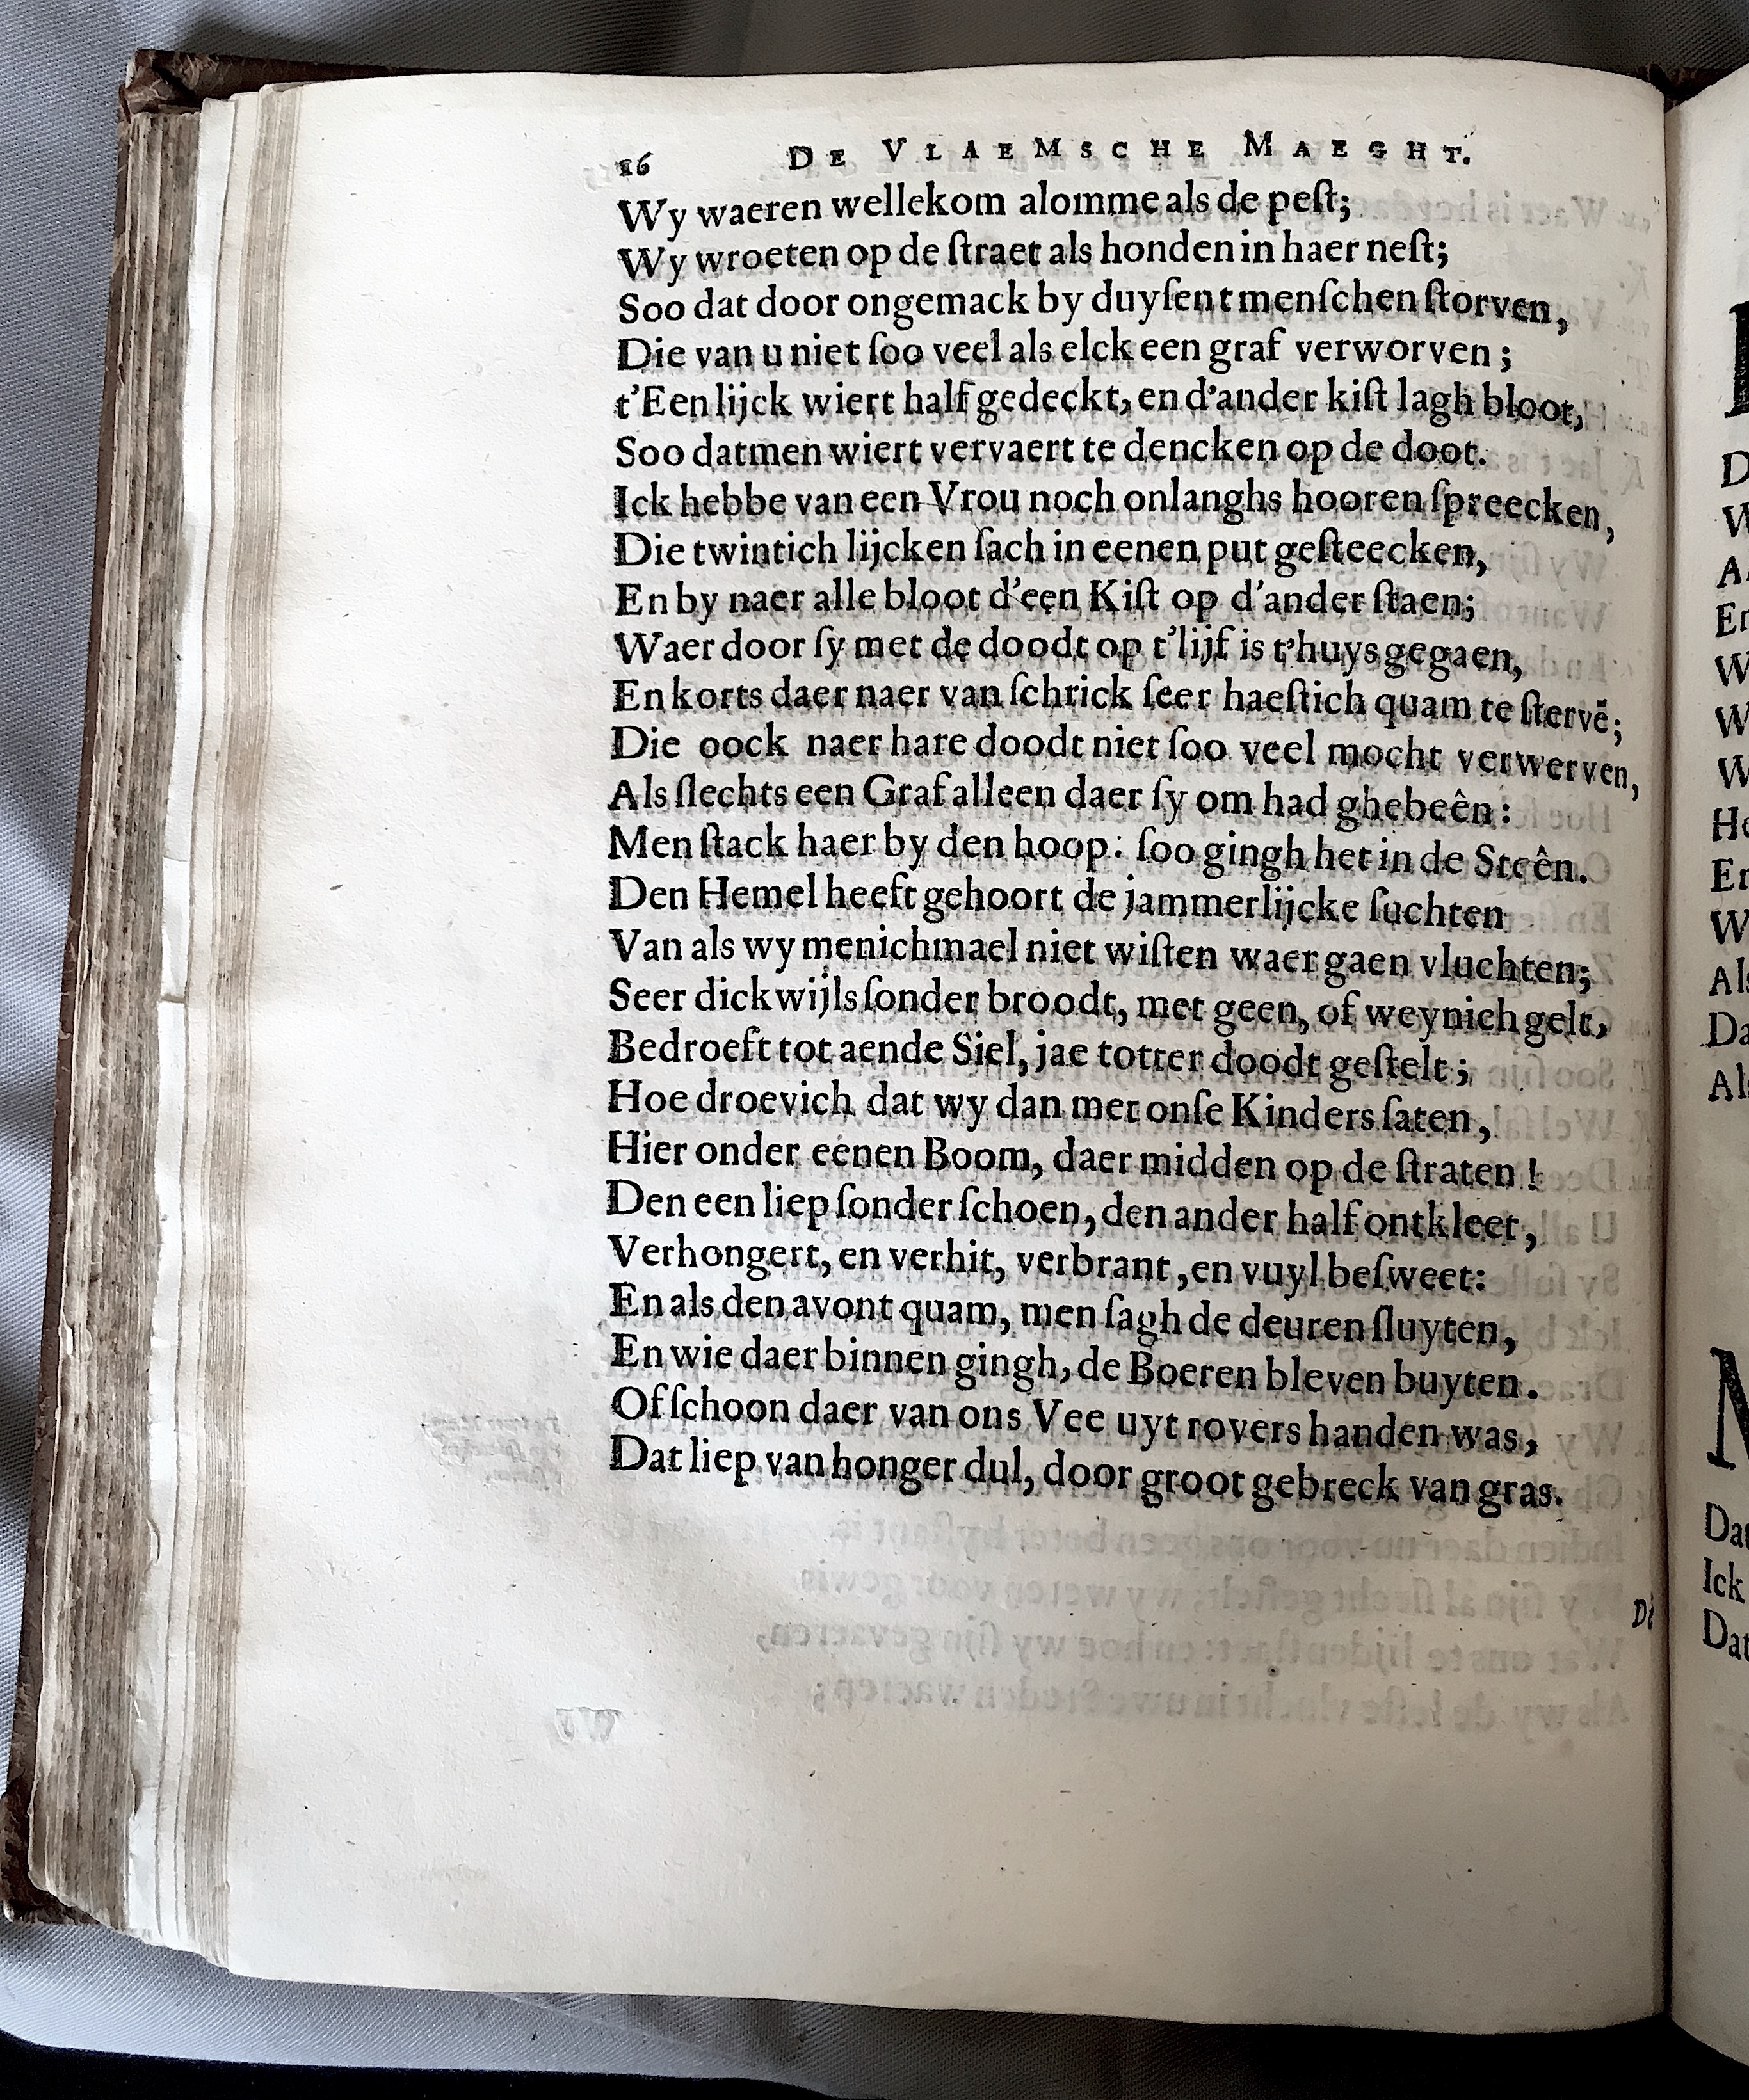 16 DE VLAEMSCHE MAEGHT.
Wy waeren wellekom alomme als de peſt;
Wy wroeten op de ſtraet als honden in haer neſt;
Soo dat door ongemack by duyſent menſchen ſtorven,
Die van u niet ſoo veel als elck een graf verworven;
t'Een lijck wiert half gedeckt, en d'ander kiſt lagh bloot,
Soo datmen wiert vervaert te dencken op de doot.
Ick hebbe van een Vrou noch onlanghs hooren ſpreecken,
Die twintich lijcken ſach in eenen put geſteecken,
En by naer alle bloot d'een Kiſt op d'ander ſtaen;
Waer door ſy met de doodt op t'lijf is t'huys gegaen,
En korts daer naer van ſchrick ſeer haeſtich quam te ſtervē;
Die oock naer hare doodt niet ſoo veel mocht verwerven,
Als ſlechts een Graf alleen daer ſy om had ghebeên:
Men ſtack haer by den hoop: ſoo gingh het in de Steên.
Den Hemel heeft gehoort de jammerlijcke ſuchten
Van als wy menichmael niet wiſten waer gaen vluchten;
Seer dickwijls ſonder broodt, met geen, of weynich gelt,
Bedroeft tot aende Siel, jae totter doodt geſtelt;
Hoe droevich dat wy dan met onſe Kinders ſaten,
Hier onder eenen Boom, daer midden op de ſtraten!
Den een liep ſonder ſchoen, den ander half ontkleet,
Verhongert, en verhit, verbrant, en vuyl beſweet:
En als den avont quam, men ſagh de deuren ſluyten,
En wie daer binnen gingh, de Boeren bleven buyten.
Of ſchoon daer van ons Vee uyt rovers handen was,
Dat liep van honger dul, door groot gebreck van gras.